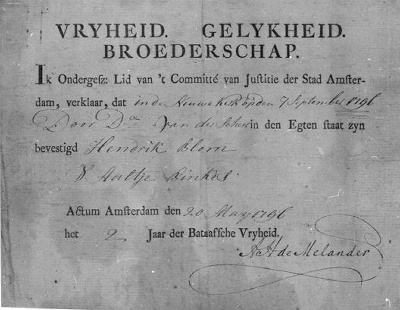 VRYHEID. GELYKHEID.
BROEDERSCHAP.
Ik Ondergesz: Lid van 't Committé van Justitie der Stad Amster-
dam, verklaar, dat in de Nieuwe Kerk op den 7 September 1796
Door Do van der in den Egten staat zyn
bevestigd Hendrik Blom
& Aaltje Kinkel
Actum Amsterdam den 20 May 1796
het 2 Jaar der Bataafsche Vryheid.
de Melander